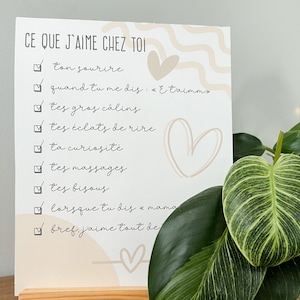 CE QUE J'AIME CHEZ TOI
ton sourire
quand tu me dis : « E t'aimmo
tes gros câlins
tes éclats de rire
ta curiosité
tes massages
tes bisous
lorsque tu dis « mama
bref, j'aime tout de